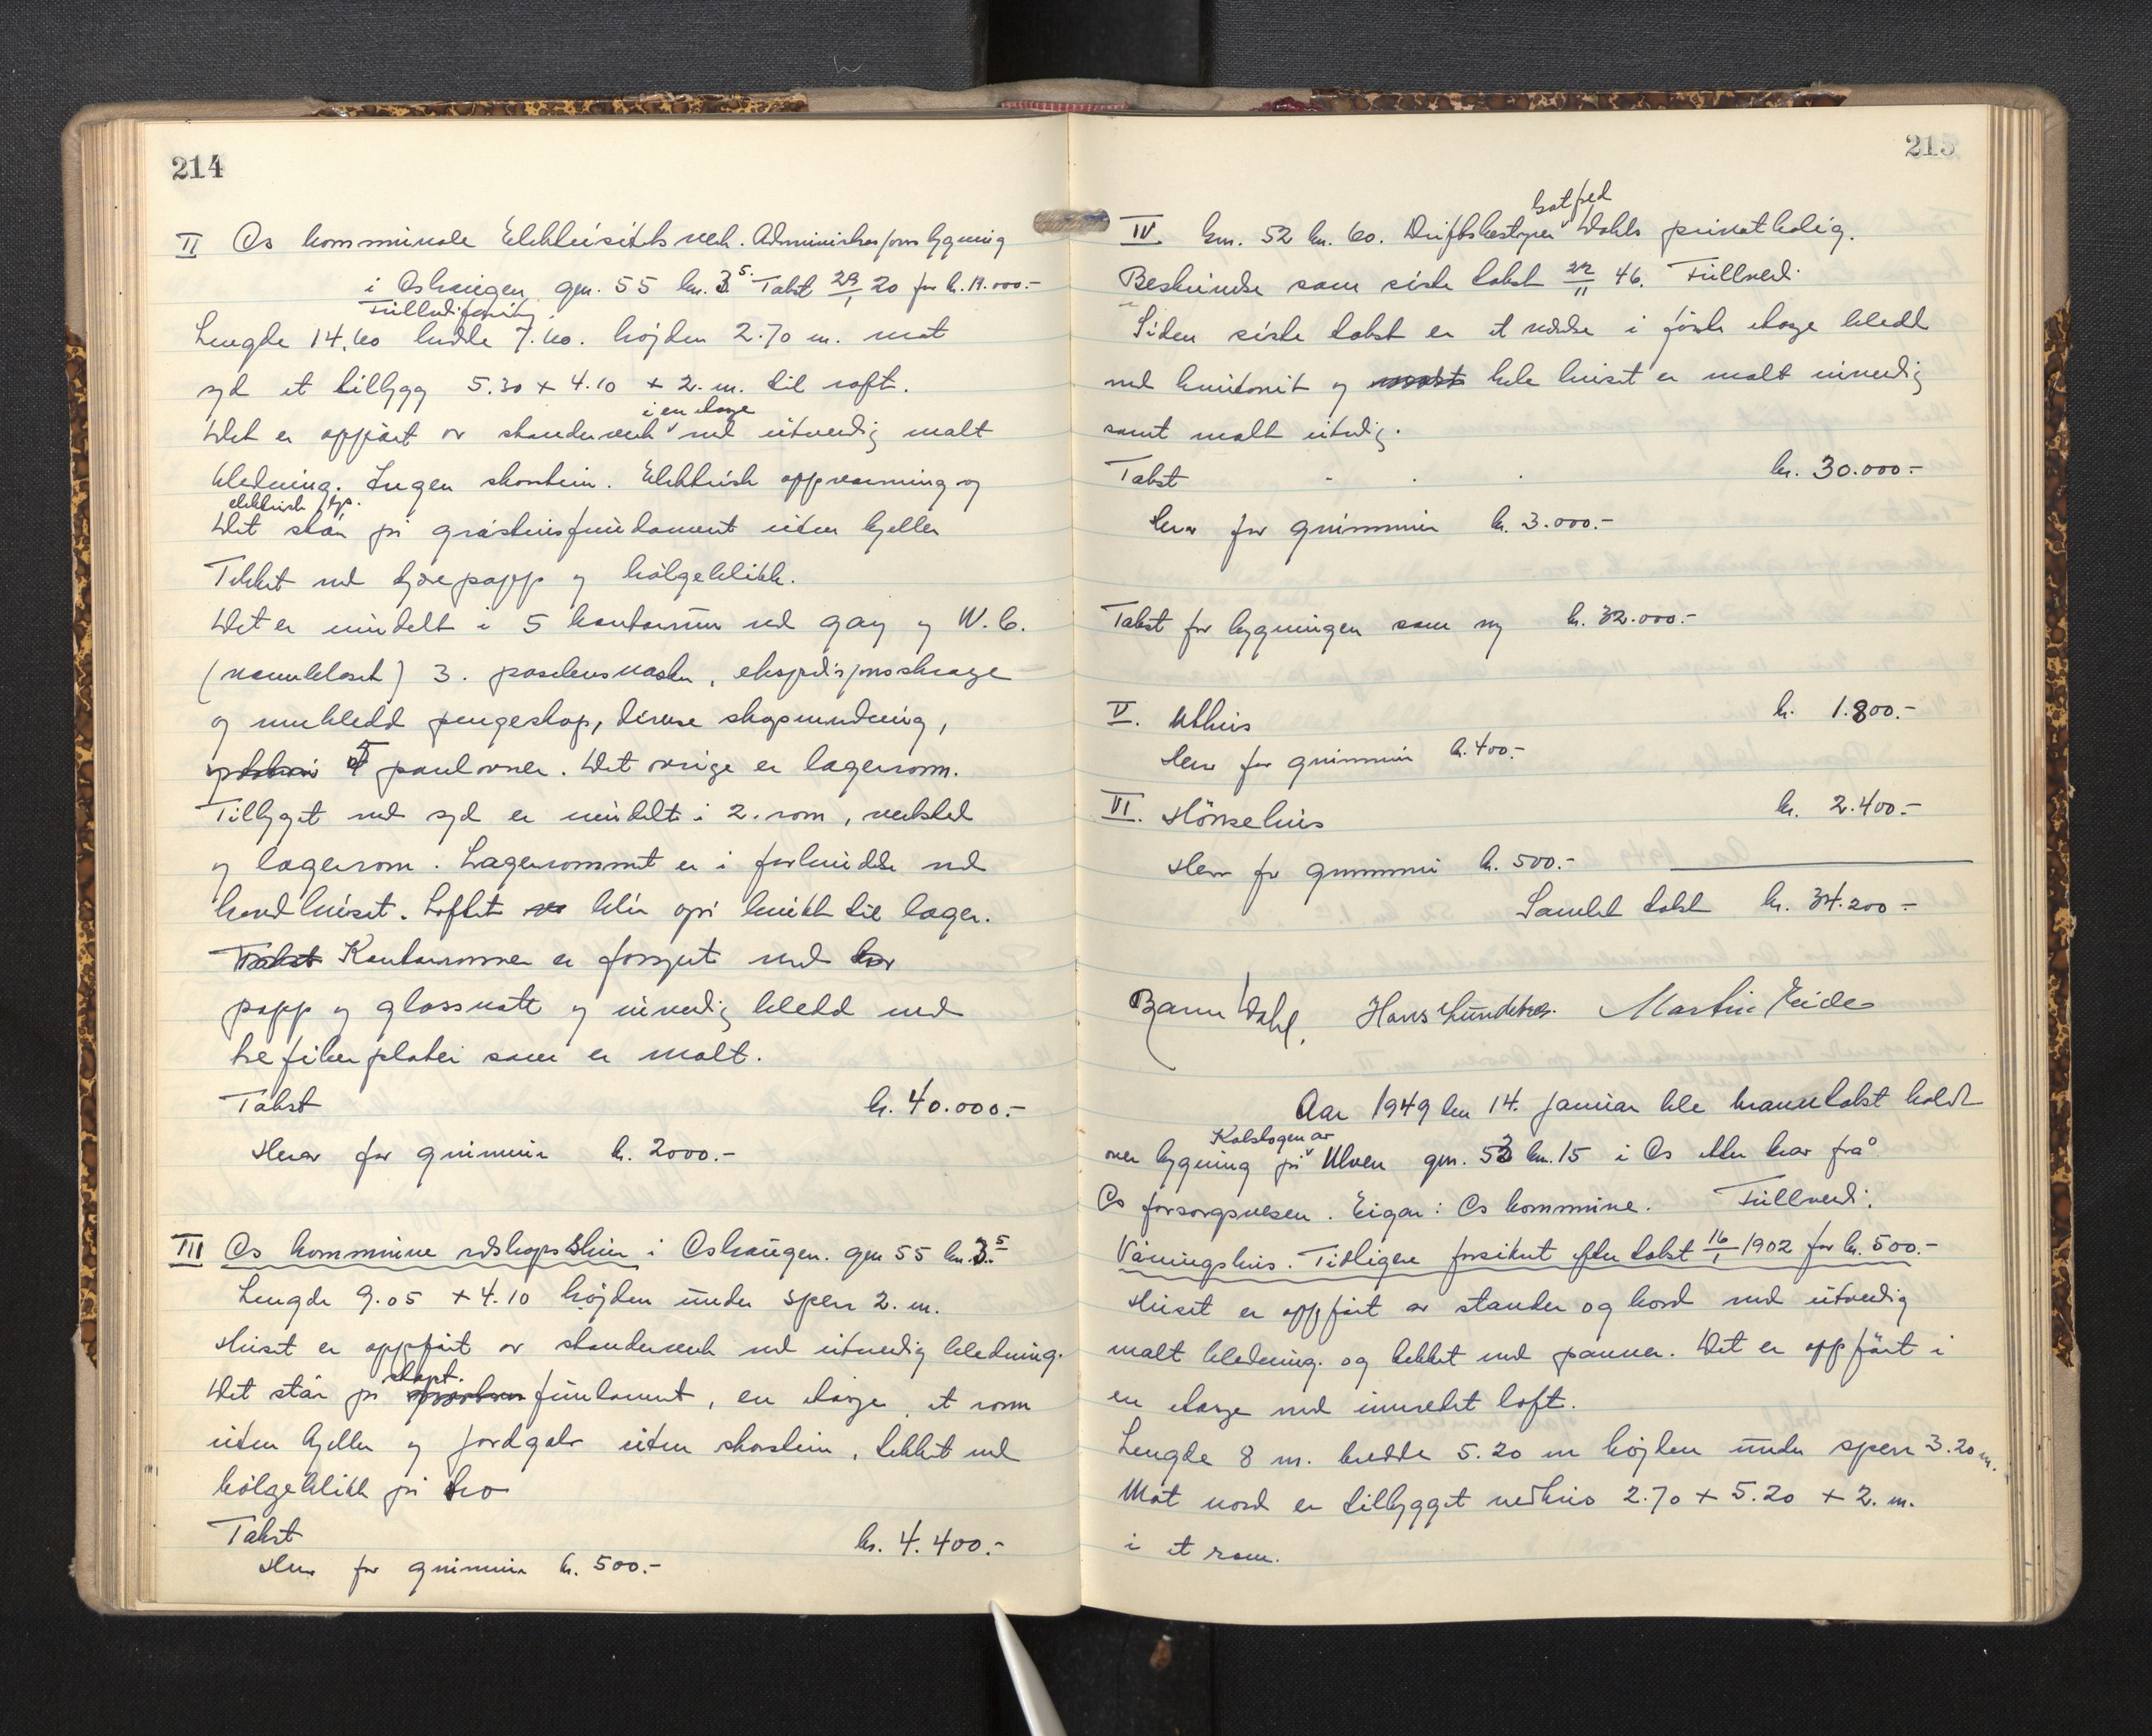 214
II Os kommunale Elektrisitetsverk. Administrasjonsbygning
i Oshaugen gnr. 55 bn. 35. Takst 29/1 20 for kr. 19.000.-
Fullverdiforsikring
Lengde 14.60 bredde 7.60. højden 2.70 m. mot
syd et tilbygg 5.30 + 4.10 + 2. m. til raft.
i en etasje
Det er oppført av standerverk med utvendig malt
kledning. Ingen skorstein. Elektrisk oppvarming og
elektrisk lys.
Det står på gråsteinsfundament uten kjeller
Tekket med tjærepapp og bølgeblikk.
Det er inndelt i 5 kontorrum med gang og W.C.
(vannklosett) 3. porselensvasker, ekspedisjonsskrage
og innkledd pengeskap, diverse skapinnredning,
5 panelovner. Det øvrige er lagerrom.
Tilbygget mot syd er inndelt i 2. rom, verksted
og lagerrom. Lagerrommet er i forbindelse med
hovedhuset. Loftet blir også brukt til lager.
Takst Kontorrommene er forsynt med
papp og glassvatt og innvendig kledd med
trefiberplater som er malt.
Takst kr. 40.000.-
Herav for grunnmur kr. 2000.-
III Os kommune redskapsskur i Oshaugen. gnr 55 bn. 35
Lengde 9.05 + 4.10 højden under sperr 2. m.
Huset er oppført av standerverk med utvendig kledning.
støpt.
Det står på fundament, en etasje, et rom
uten kjeller og jordgolv uten skorstein, tekket med
bølgeblikk på tro
Takst kr. 4.400.-
Herav for grunnmur kr. 500.-
215
IV gnr. 52 bn. 60. Driftsbestyrer Dahls privatbolig.
Beskrivelse som siste takst 22/11 46. Fullverdi
Siden siste takst er et værelse i første etasje kledt
med huntonit og hele huset er malt innvendig
samt malt utvendig.
Takst kr. 30.000.-
Herav for grunnmur kr. 3.000.-
Takst for bygningen som ny kr. 32.000.-
V. Uthus kr. 1.800.-
Herav for grunnmur kr. 400.-
VI. Hønsehus kr. 2.400.-
Herav for grunnmur kr. 500.-
Samlet takst kr. 34.200.-
Dahl. Hans Lundetræ. Martin Eide
Aar 1949 den 14. januar ble branntakst holdt
Kolskogen av
over bygning på Ulven gnr. 53 bn. 15 i Os etter krav frå
Os forsorgsvesen. Eigar: Os kommune. Fullverdi.
Våningshus. Tidligere forsikret efter takst 16/1 1902 for kr. 500.-
Huset er oppført av stander og bord med utvendig
malt kledning. og tekket med panner. Det er oppført i
en etasje med innredet loft.
Lengde 8 m. bredde 5.20 m højden under sperr 3.20 m.
Mot nord er tilbygget vedhus 2.70 + 5.20 + 2. m.
i et rom.